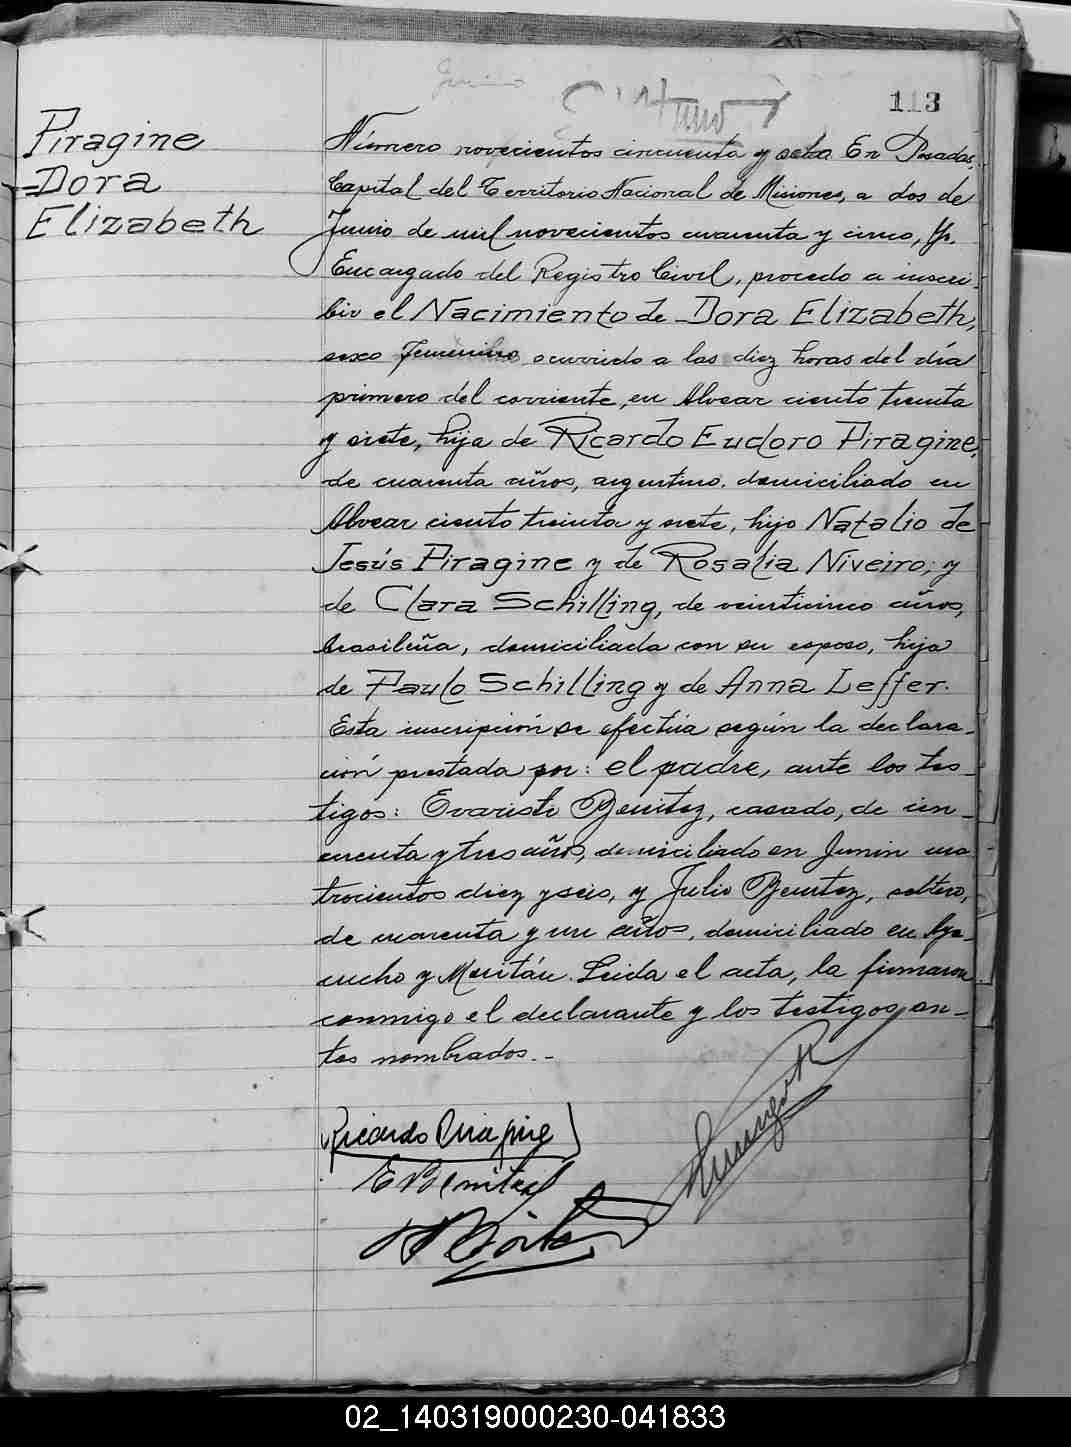 113
Piragine
Dora
Elizabeth
Número novecientos cincuenta y En Posadas,
Capital del Territorio Nacional de Misiones, a dos de
Junio de mil novecientos cuarenta y cinco, Yo,
Encargado del Registro Civil, procedo a inscri-
bir el Nacimiento de Dora Elizabeth,
sexo femenino ocurrido a las diez horas del día
primero del corriente, en Alvear ciento treinta
y siete, hija de Ricardo Eudoro Piragine,
de cuarenta años, argentino, domiciliado en
Alvear ciento treinta y siete, hijo Natalio de
Jesús Piragine y de Rosalia Niveiro; y
de Clara Schilling, de veinticinco años,
brasileña, domiciliada con su esposo, hija
de Paulo Schilling y de Anna Leffer.
Esta inscripción se efectúa según la declara-
ción prestada por: el padre, ante los tes-
tigos: Evaristo Benitez, casado, de cin-
cuenta y tres años, domiciliado en Junin cua
trocientos diez y seis, y Julio Benitez, soltero,
de cuarenta y un años, domiciliado en Aya-
cucho y Moritán. Leida el acta, la firmaron
conmigo el declarante y los testigos an-
tes nombrados.-
Ricardo Piragine
E Benitez
02_140319000230-041833